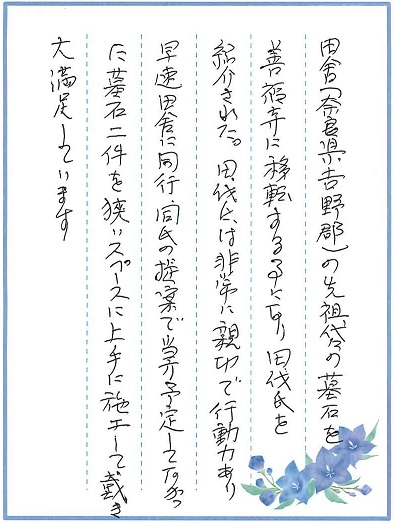 田舎(奈良県吉野郡)の先祖代々の墓石を
善福寺に移転する事になり田代氏を
紹介された。田代氏は非常に親切で行動力あり
早速田舎に同行、同氏の提案で当初予定してなかっ
た墓石二件を狭いスペースに上手に施工して戴き
大満足しています